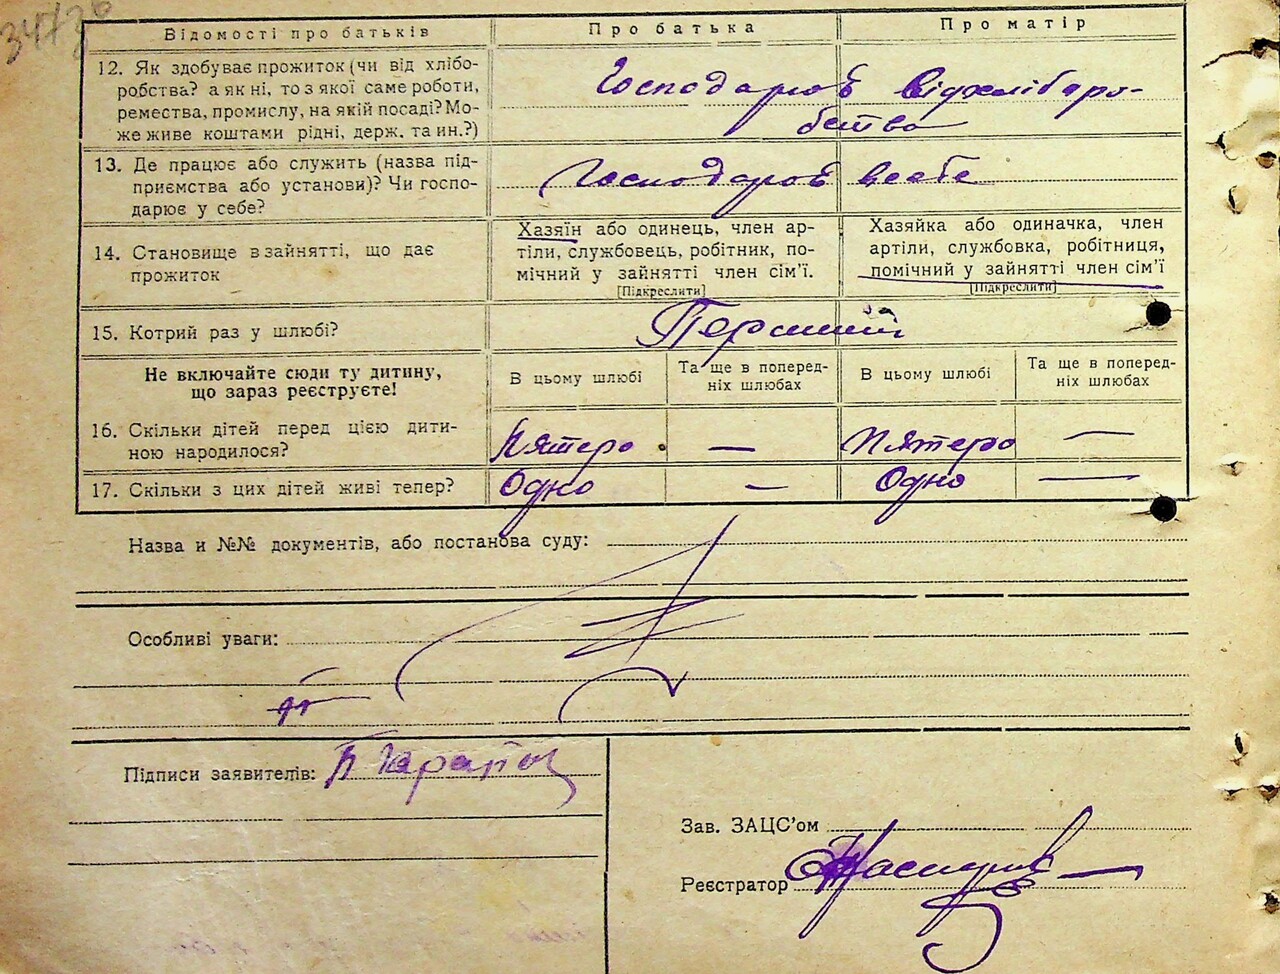 34/26
Відомості про батьків
Про батька
Про матір
12. Як здобуває прожиток (чи від хлібо-
робства? а як ні, то з якої саме роботи,
ремества, промислу, на якій посаді? Мо-
же живе коштами рідні, держ. та ин.?)
Господаров Відхлібаро-
бства
13. Де працює або служить (назва під-
приємства або установи)? Чи госпо-
дарює у себе?
Господаров всебе
14. Становище в зайнятті, що дає
прожиток
Хазяїн або одинець, член ар-
тіли, службовець, робітник, по-
мічний у зайнятті член сім’ї.
[Підкреслити]
Хазяйка або одиначка, член
артіли, службовка, робітниця,
помічний у зайнятті член сім’ї
[Підкреслити]
15. Котрий раз у шлюбі?
Перший
Не включайте сюди ту дитину,
що зараз реєструєте!
В цьому шлюбі
Та ще в поперед-
ніх шлюбах
В цьому шлюбі
Та ще в поперед-
ніх шлюбах
16. Скільки дітей перед цією дити-
ною народилося?
Пятеро — Пятеро —
17. Скільки з цих дітей живі тепер?
Одно — Одно —
Назва и №№ документів, або постанова суду:
Особливі уваги:
Підписи заявителів:
Зав. ЗАЦС’ом
Реєстратор